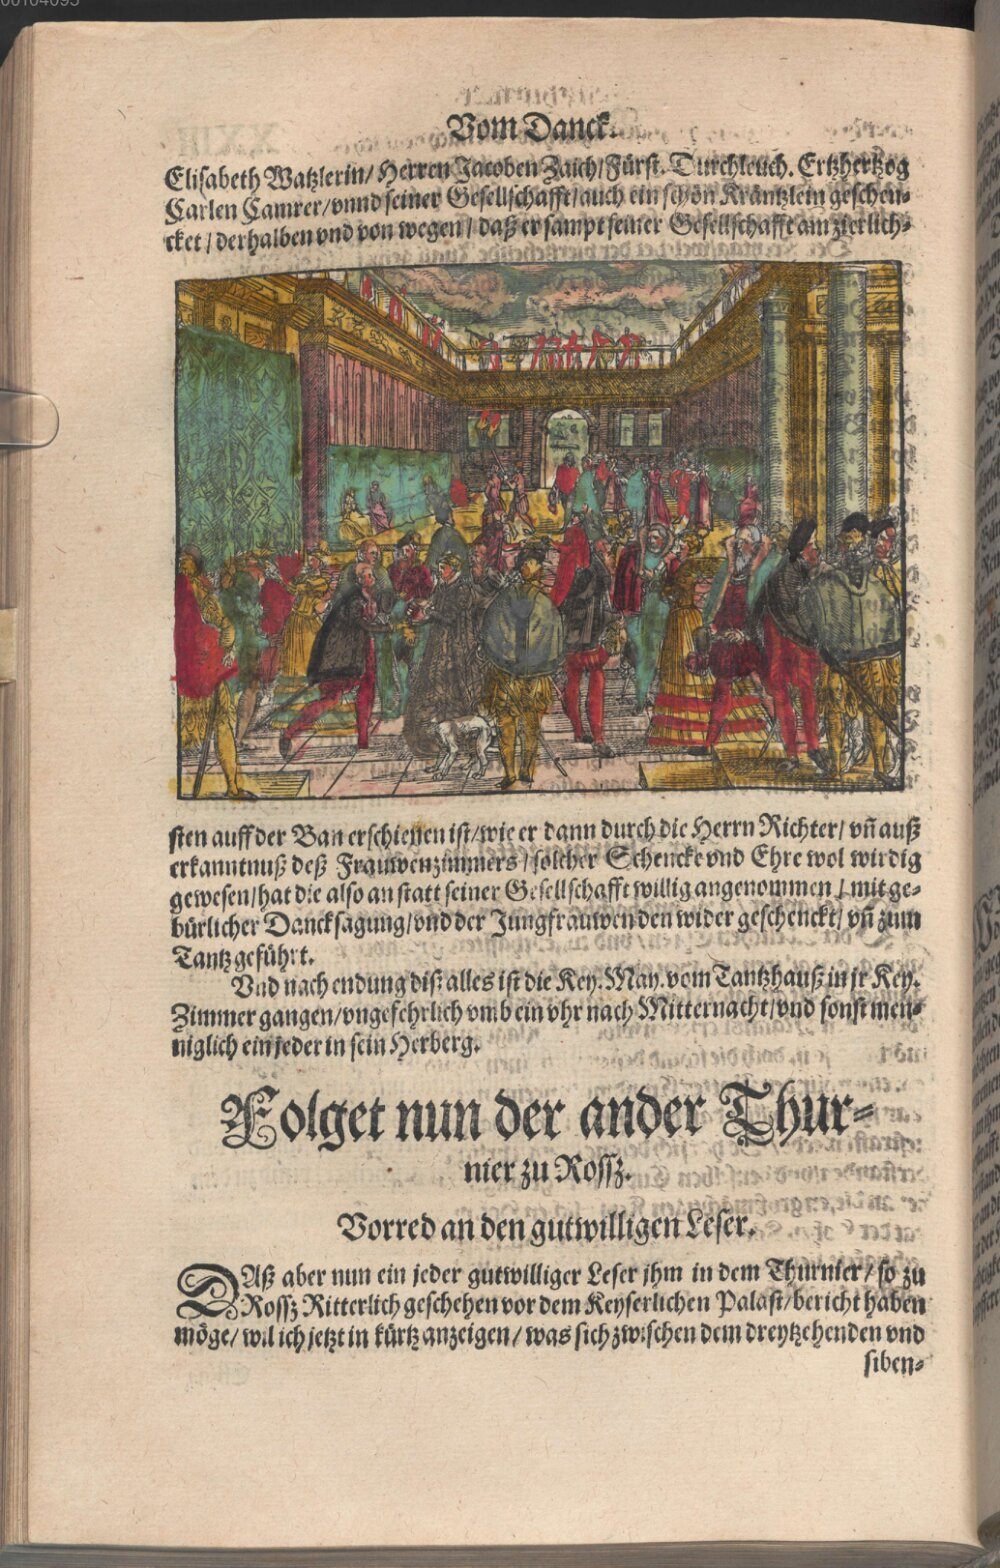 00104093
Vom Danck.
Elisabeth Watzlerin/ Herren Jacoben Zaich/ Fürst. Durchleuch. Ertzhertzog
Carlen Camrer/ vnnd seiner Gesellschafft/ auch ein schön Kräntzlein geschen-
cket/ derhalben vnd von wegen/ daß er sampt seiner Gesellschafft am zierlich-
sten auff der Ban erschienen ist/ wie er dann durch die Herrn Richter/ vñ auß
erkanntnuß deß Frauwenzimmers/ solcher Schencke vnd Ehre wol wirdig
gewesen/ hat die also an statt seiner Gesellschafft willig angenommen/ mit ge-
bürlicher Dancksagung/ vnd der Jungfrauwen den wider geschenckt/ vñ zum
Tantz geführt.
Vnd nach endung diß alles ist die Key. May. vom Tantzhauß in jr Key.
Zimmer gangen/ vngefehrlich vmb ein vhr nach Mitternacht/ vnd sonst men-
niglich ein jeder in sein Herberg.
Folget nun der ander Thur-
nier zu Rossz.
Vorred an den gutwilligen Leser.
DAß aber nun ein jeder gutwilliger Leser jhm in dem Thurnier/ so zu
Rossz Ritterlich geschehen vor dem Keyserlichen Palast/ bericht haben
möge/ wil ich jetzt in kürtz anzeigen/ was sich zwischen dem dreytzehenden vnd
siben-